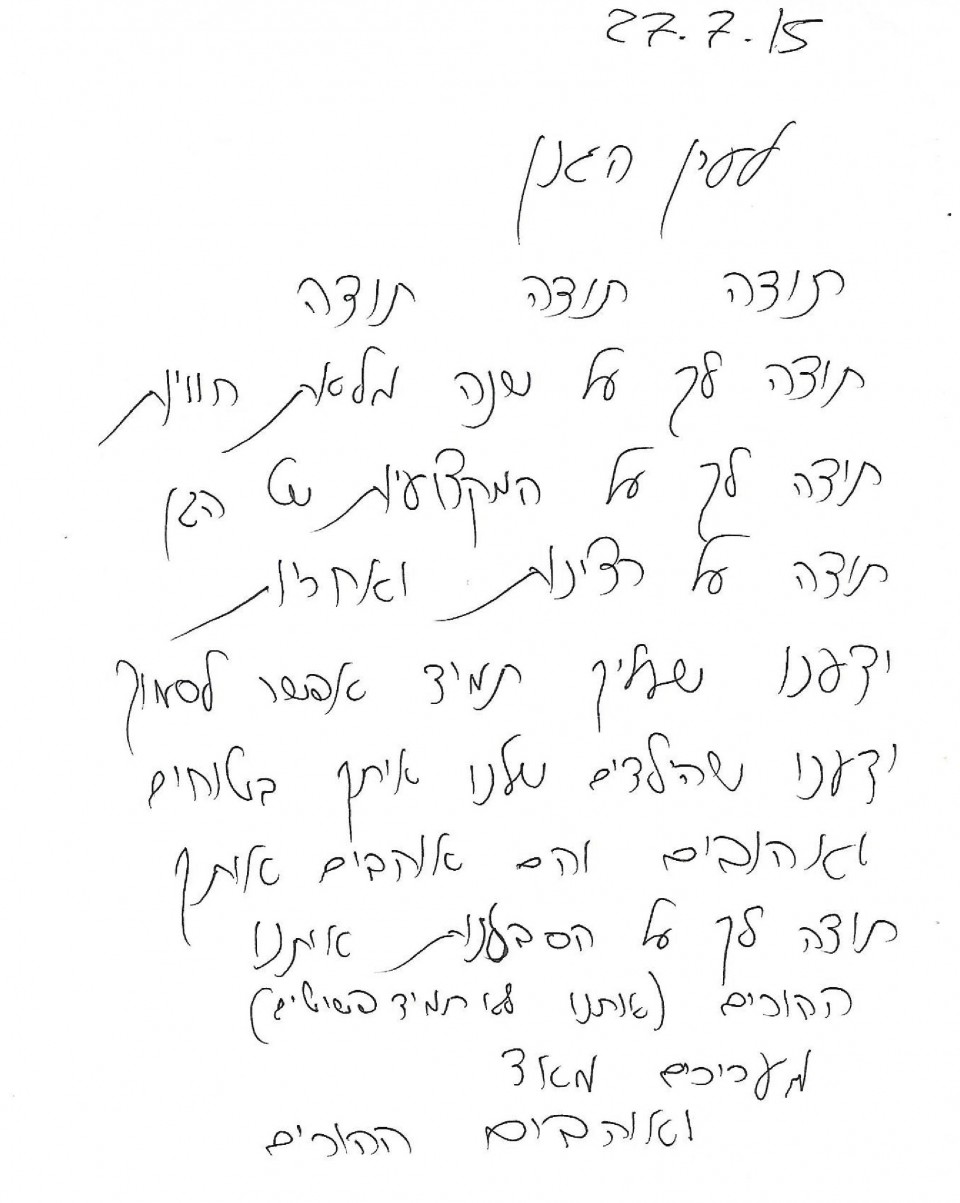 27.7.15
לעירן הגנן
תודה תודה תודה
תודה לך על שנה מלאת חוויות
תודה לך על המקצועיות של הגן
תודה על רצינות ואחריות
ידענו שעליך תמיד אפשר לסמוך
ידענו שהילדים שלנו איתך בטוחים
ואהובים והם אוהבים אותך
תודה לך על הסבלנות איתנו
ההורים (אנחנו לא תמיד פשוטים)
מעריכים מאוד
ואוהבים ההורים